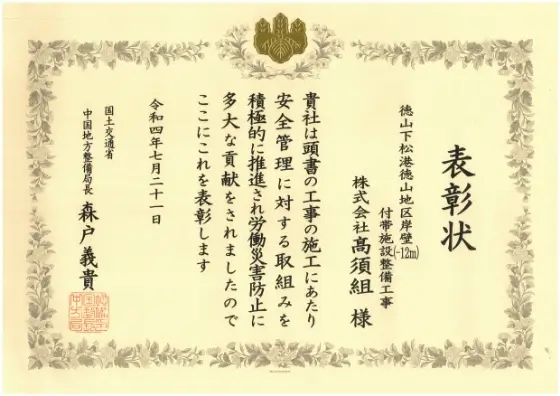 表彰状
徳山下松港徳山地区岸壁(-12m)
付帯施設整備工事
株式会社髙須組 様
貴社は頭書の工事の施工にあたり
安全管理に対する取組みを
積極的に推進され労働災害防止に
多大な貢献をされましたので
ここにこれを表彰します
令和四年七月二十一日
国土交通省
中国地方整備局長 森戸義貴